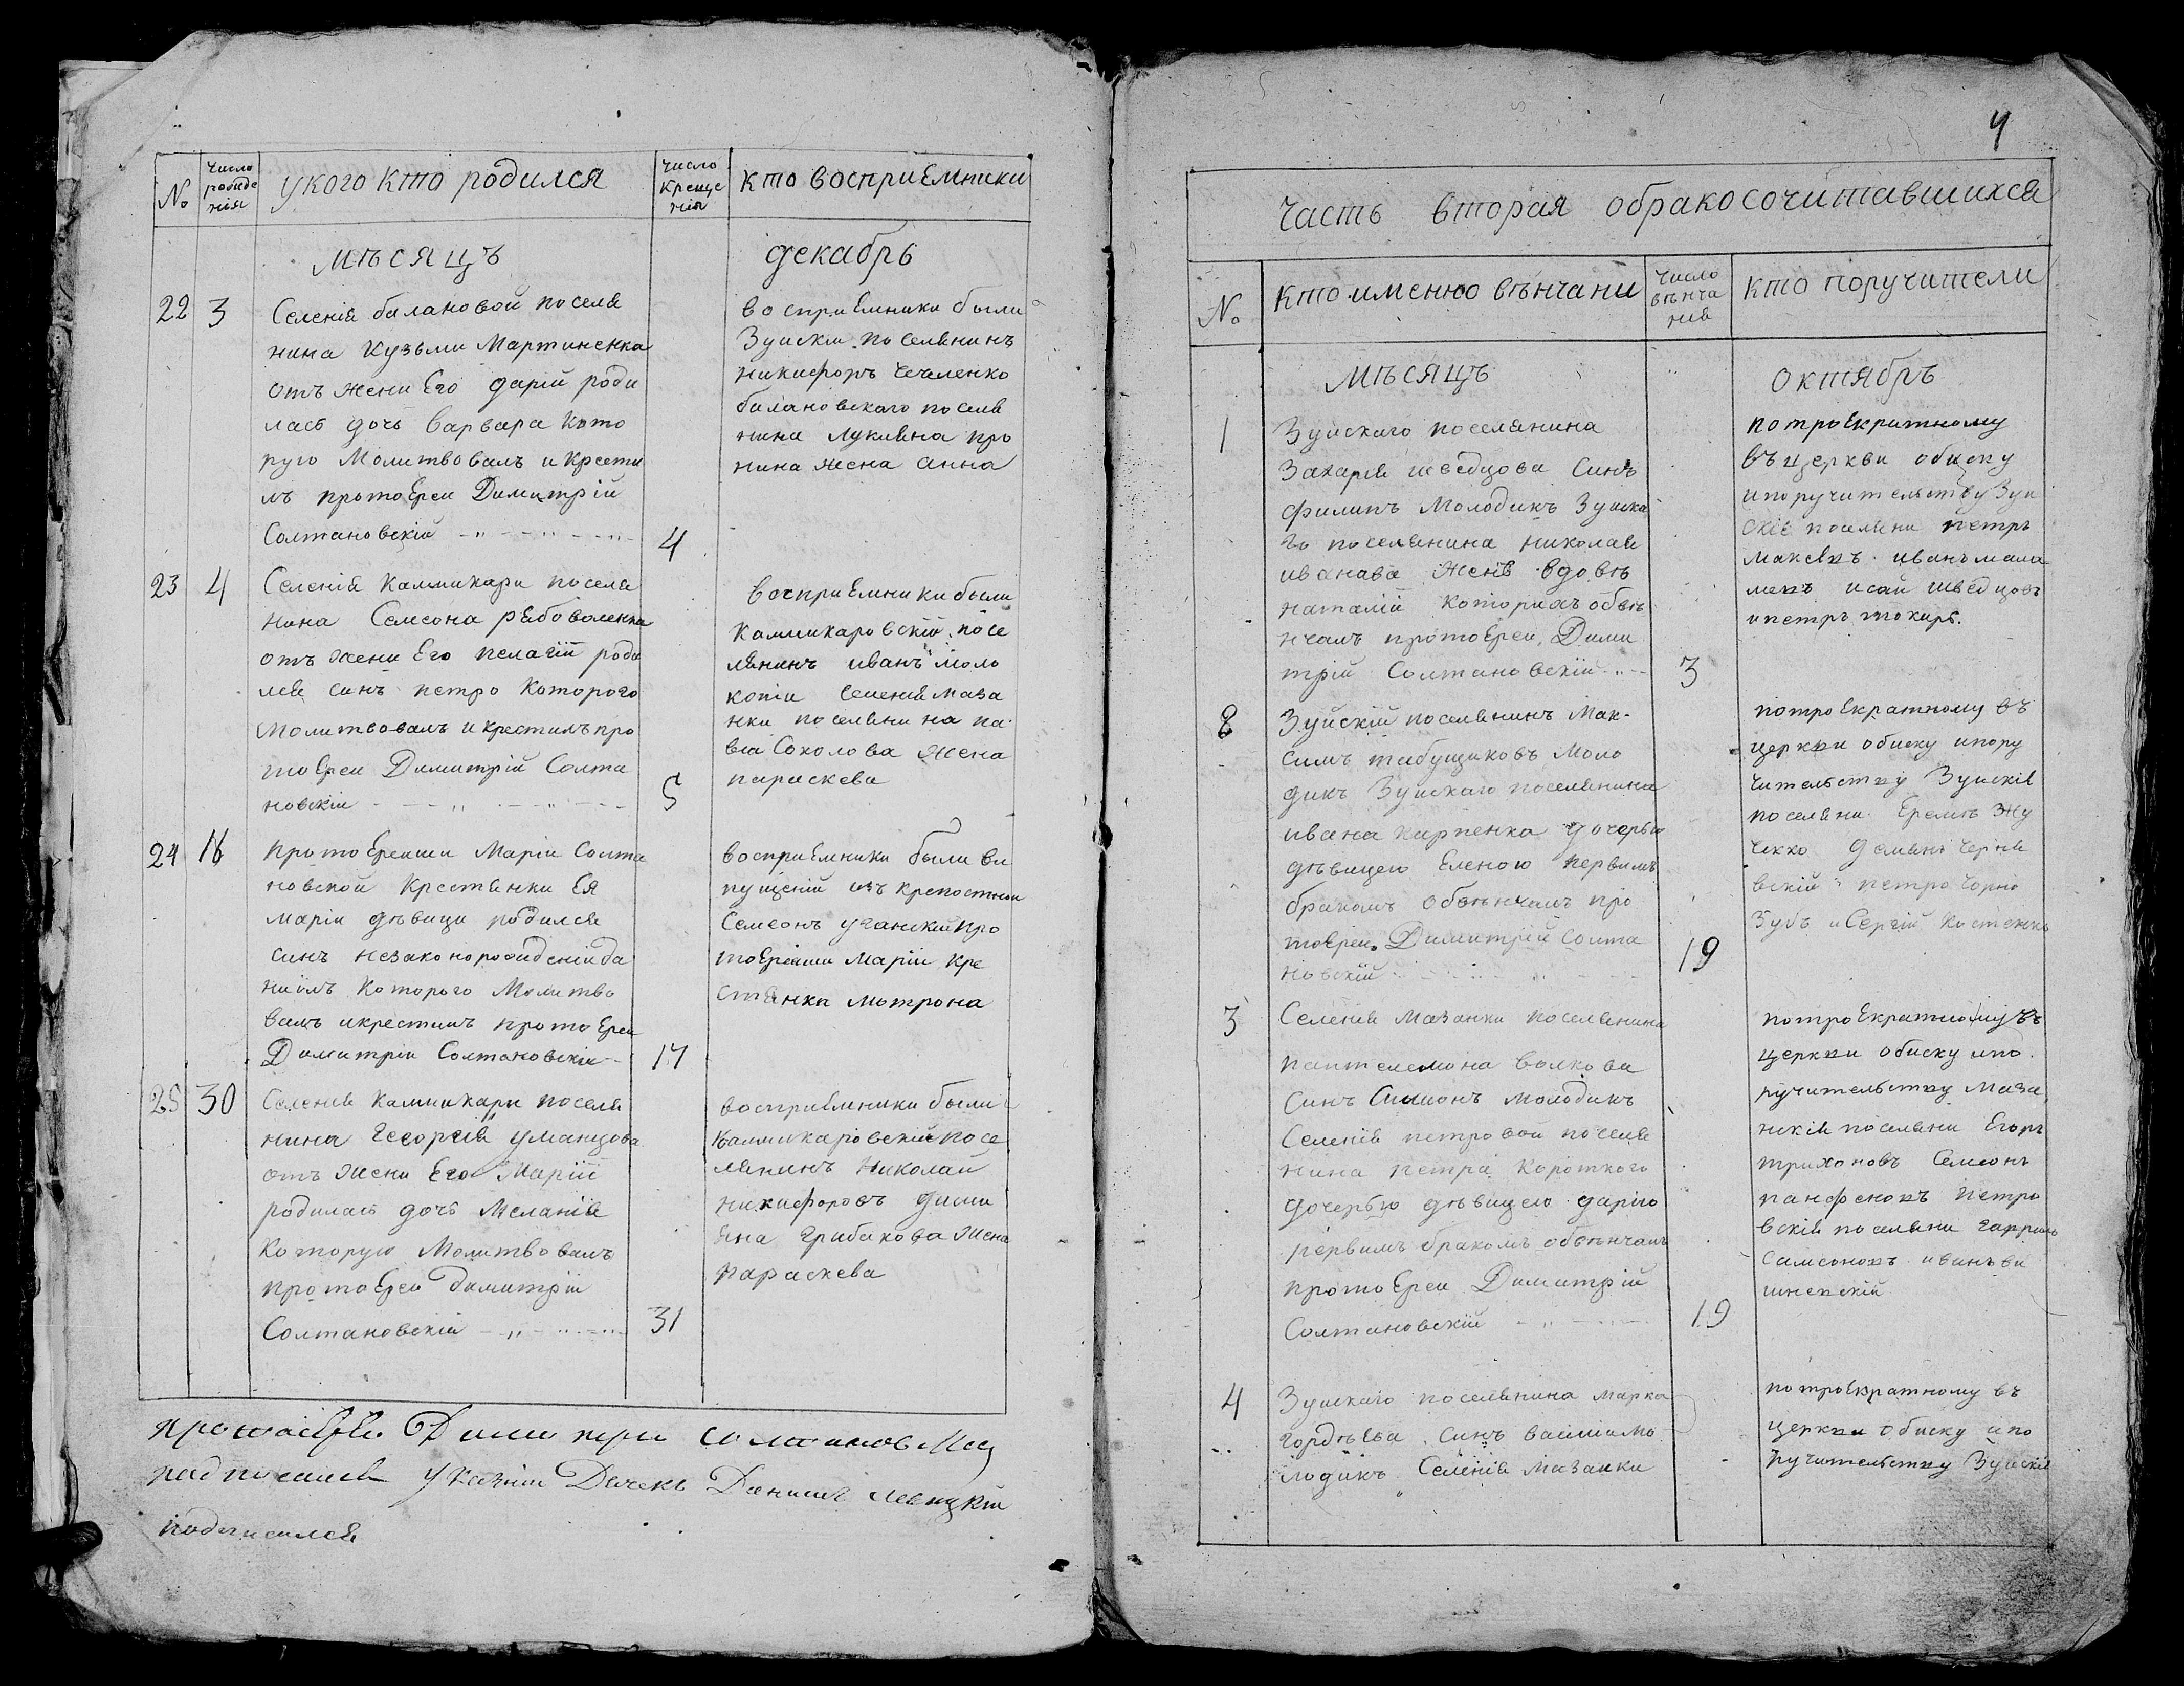 №
Число
рожде
нія
У кого кто родился
число
креще
нія
кто восприЕмники
мѣсяцъ
декабрь
22
3
Селенія билановой поселя
нина Кузьми Мартиненка
отъ жени Его дарій роди
лась дочь варвара кото
рую Молитвовалъ и крести
лъ протоЕреи Димитрій
Солтановскій
4
восприЕмники были
Зуискіи поселянинъ
никифоръ
билановскаго поселя
нина лукияна про
нина жена анна
23
4
Селенія Каммикари поселя
нина Семсона
отъ жени Его пелагіи роди
лся синъ петро Которого
молитвовалъ и крестилъ про
тоЕреи Димитрій Солта
новскіи
5
восприЕмники были
Каммикаровскій посе
лянинъ иванъ моло
котіи Селенія маза
нки поселянина па
вла Соколова жена
параскева
24
16
протоЕреиши Маріи Солта
новской Крестянки Ея
маріи дѣвици родился
синъ незаконорожденій да
ніилъ Которого Молитво
валъ и крестилъ протоЕреи
Димитріи Солтановскіи
17
восприЕмники были ви
пущеній изъ крепостнои
Семсонъ про
тоЕреиши Маріи кре
стянка мотрона
25
30
Селенія Каммикари поселя
нина Георгія уманцова
отъ жени Его Маріи
родилась дочь Меланія
Которую Молитвовалъ
протоЕреи Димитріи
Солтановскій
31
восприЕмники были
Каммикаровскій посе
лянинъ Николаи
никифоровъ дими
яна грибакова жена
параскева
протоіерей Димитри Солтановскій
подписался Указніи Дячекъ Даниилъ левицкіи
подписался
4
Часть вторая обракосочитавшихся
№
Кто именно вѣнчани
Число
вѣнча
нія
кто поручители
мѣсяцъ
октябръ
1
Зуискаго поселянина
Захарія шведцова Синъ
филипъ Молодикъ Зуиска
го поселянина николая
иванова женѣ вдовѣ
наталіи Которихъ обвѣ
нчалъ протоЕреи Дими
трій Солтановскій
3
потроЕкратному
въ церкви обиску
и поручительству Зуи
скіе поселяни петръ
макеевъ иванъ мала
исай шведцовъ
и петръ токарь.
2
Зуйскій поселянинъ Мак-
симъ табунщиковъ Моло
дикъ Зуискаго поселянина
ивана карпенка дочерью
дѣвицею Еленою первимъ
бракомъ обвѣнчалъ про
тоЕреи Димитрій Солта
новскій
19
потроЕкратному въ
церкви обиску и пору
чительству Зуискія
поселяни Еремъ Жу
ченко демянъ черня
вскій петро Чорно
Зубъ и Сергій Костенко
3
Селенія Мазанки поселянина
пантелемона волкова
Синъ Симионъ молодикъ
Селенія петровой поселя
нина петра Короткого
дочерью дѣвицею дарію
первимъ бракомъ обвѣнчалъ
протоЕреи Димитрій
Солтановскій
19
потроЕкратному въ
церкви обиску и по
ручительству маза
нскія поселяни Егоръ
трихоновъ Семсонъ
панфеновъ петро
вскія поселяни гаррило
Самсоновъ иванъ ви
шневскій
4
Зуискаго поселянина Марка
гордѣева синъ василіи мо
лодикъ Селенія Мазанки
потроЕкратному въ
церкви обиску и по
ручительству Зуискія